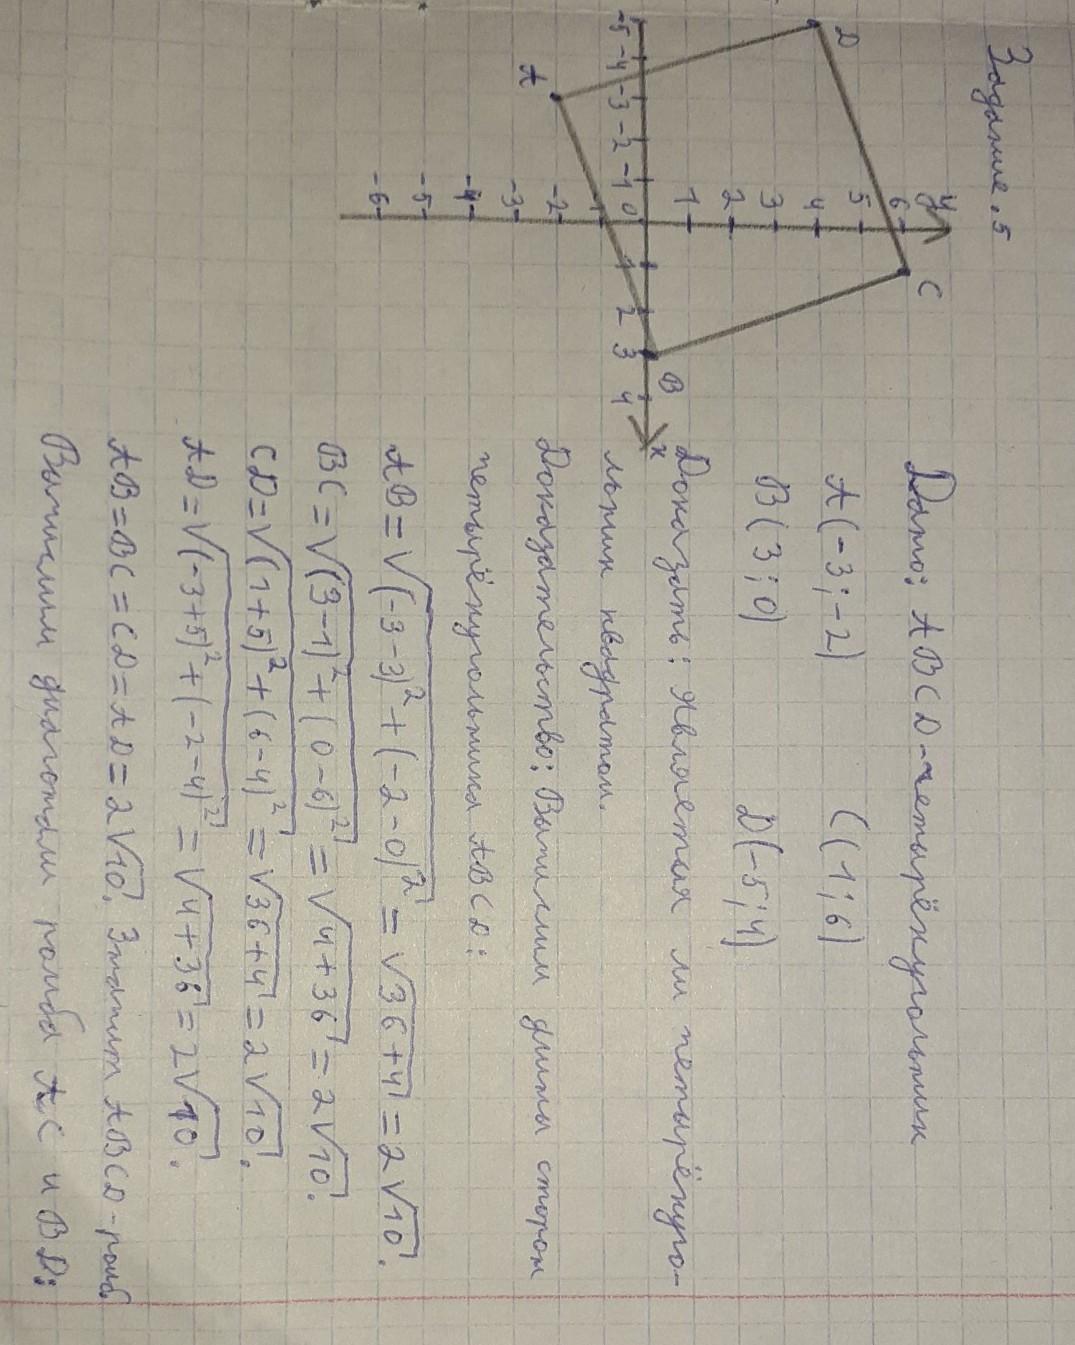 Задание.5
Дано: ABCD-четырёхугольник
A(-3;-2) C(1;6)
B(3;0) D(-5;4)
Доказать: Является ли четырёхуго-
льник квадратом.
Доказательство: Вычислим длины сторон
четырёхугольника ABCD:
AB=√(-3-3)²+(-2-0)²=√36+4=2√10.
BC=√(3-1)²+(0-6)²=√4+36=2√10.
CD=√(1+5)²+(6-4)²=√36+4=2√10.
AD=√(-3+5)²+(-2-4)²=√4+36=2√10.
AB=BC=CD=AD=2√10. Значит ABCD-ромб.
Вычислим диагонали ромба AC и BD:
y
6
5
4
3
2
1
0
-2
-3
-4
-5
-6
-5 -4 -3 -2 -1 1 2 3 4 x
A
B
C
D